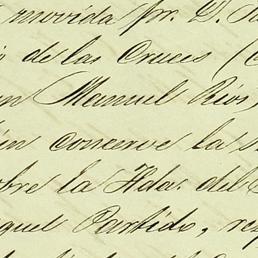 movida pr. D.
de las Cruces (
Manuel Rios
concerve la
la Hda. del
Partido, res